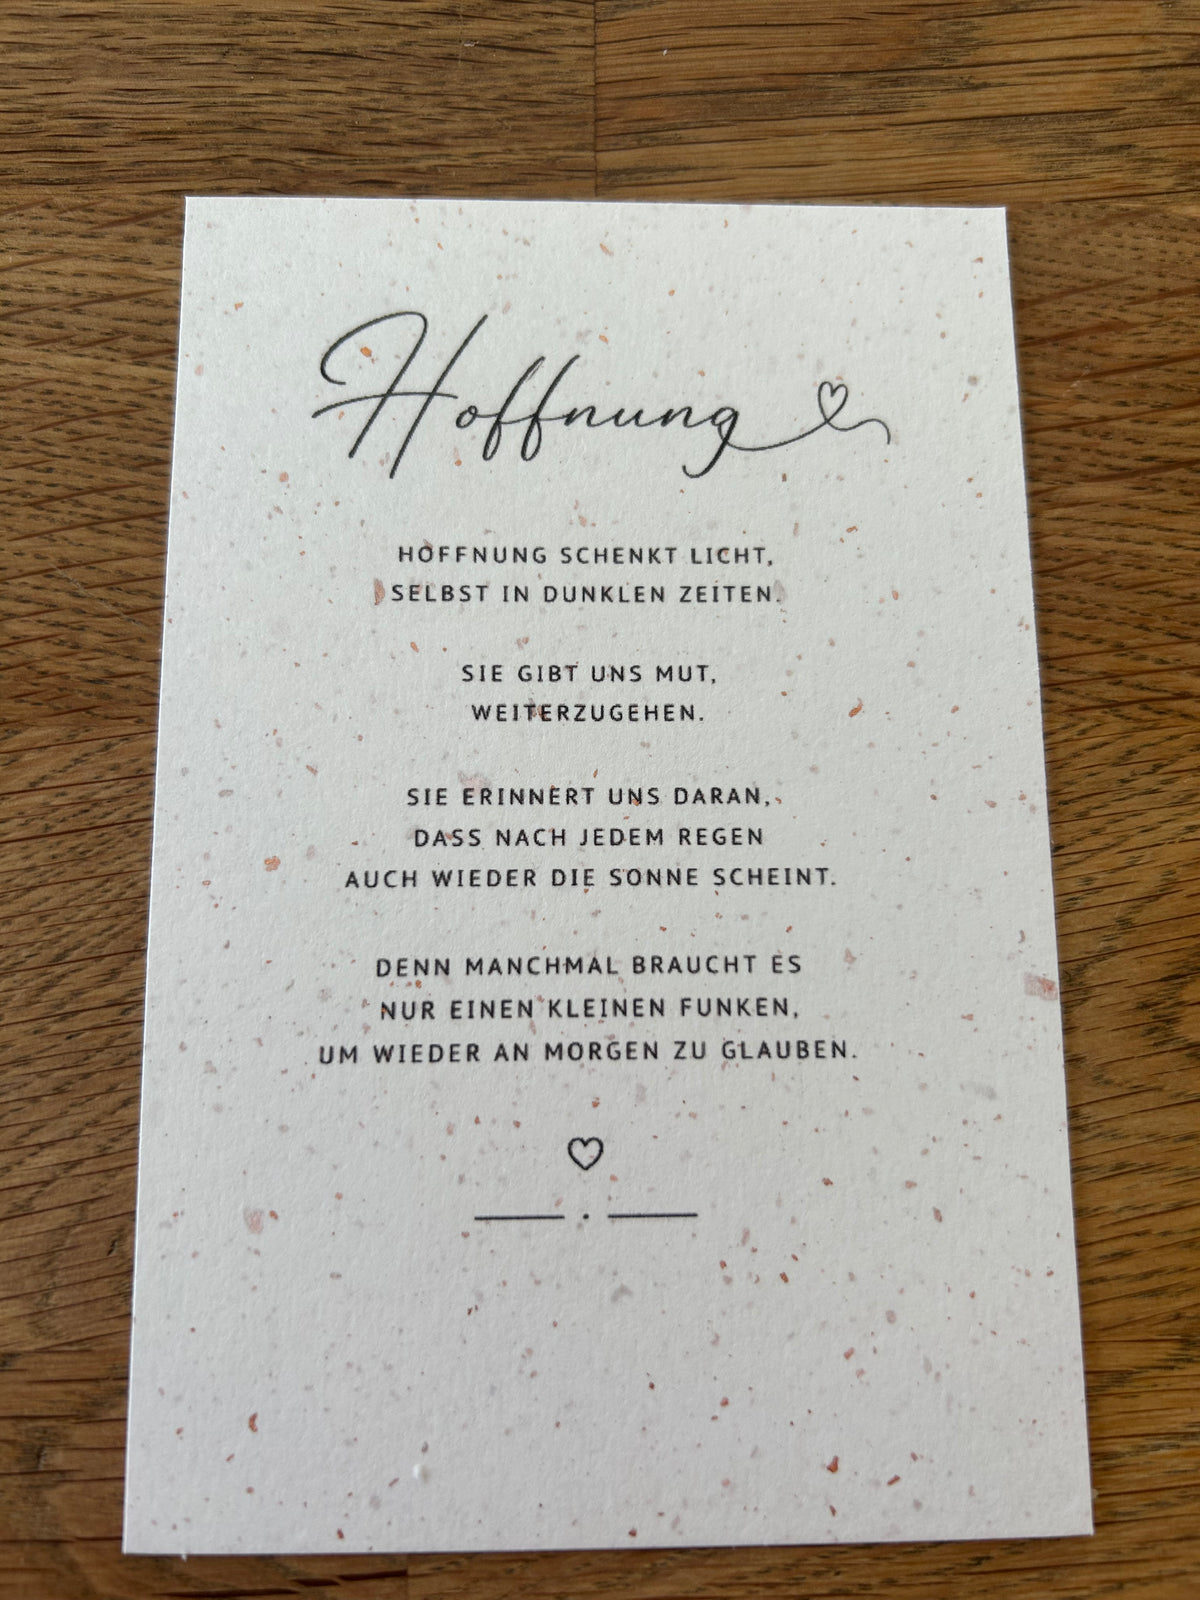 Hoffnung
HOFFNUNG SCHENKT LICHT,
SELBST IN DUNKLEN ZEITEN.
SIE GIBT UNS MUT,
WEITERZUGEHEN.
SIE ERINNERT UNS DARAN,
DASS NACH JEDEM REGEN
AUCH WIEDER DIE SONNE SCHEINT.
DENN MANCHMAL BRAUCHT ES
NUR EINEN KLEINEN FUNKEN,
UM WIEDER AN MORGEN ZU GLAUBEN.